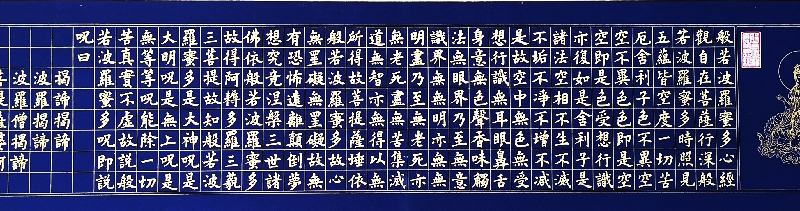 般若波羅蜜多心經
觀自在菩薩行深般
若波羅蜜多時照見
五蘊皆空度一切苦
厄舍利子色不異空
空不異色色即是空
空即是色受想行識
亦復如是舍利子是
諸法空相不生不滅
不垢不淨不增不減
是故空中無色無受
想行識無眼耳鼻舌
身意無色聲香味觸
法無眼界乃至無意
識界無無明亦無無
明盡乃至無老死亦
無老死盡無苦集滅
道無智亦無得以無
所得故菩提薩埵依
般若波羅蜜多故心
無罣礙無罣礙故無
有恐怖遠離顛倒夢
想究竟涅槃三世諸
佛依般若波羅蜜多
故得阿耨多羅三藐
三菩提故知般若波
羅蜜多是大神呪是
大明呪是無上呪是
無等等呪能除一切
苦真實不虛故說般
若波羅蜜多呪即說
呪曰
揭諦揭諦
波羅揭諦
波羅僧揭諦